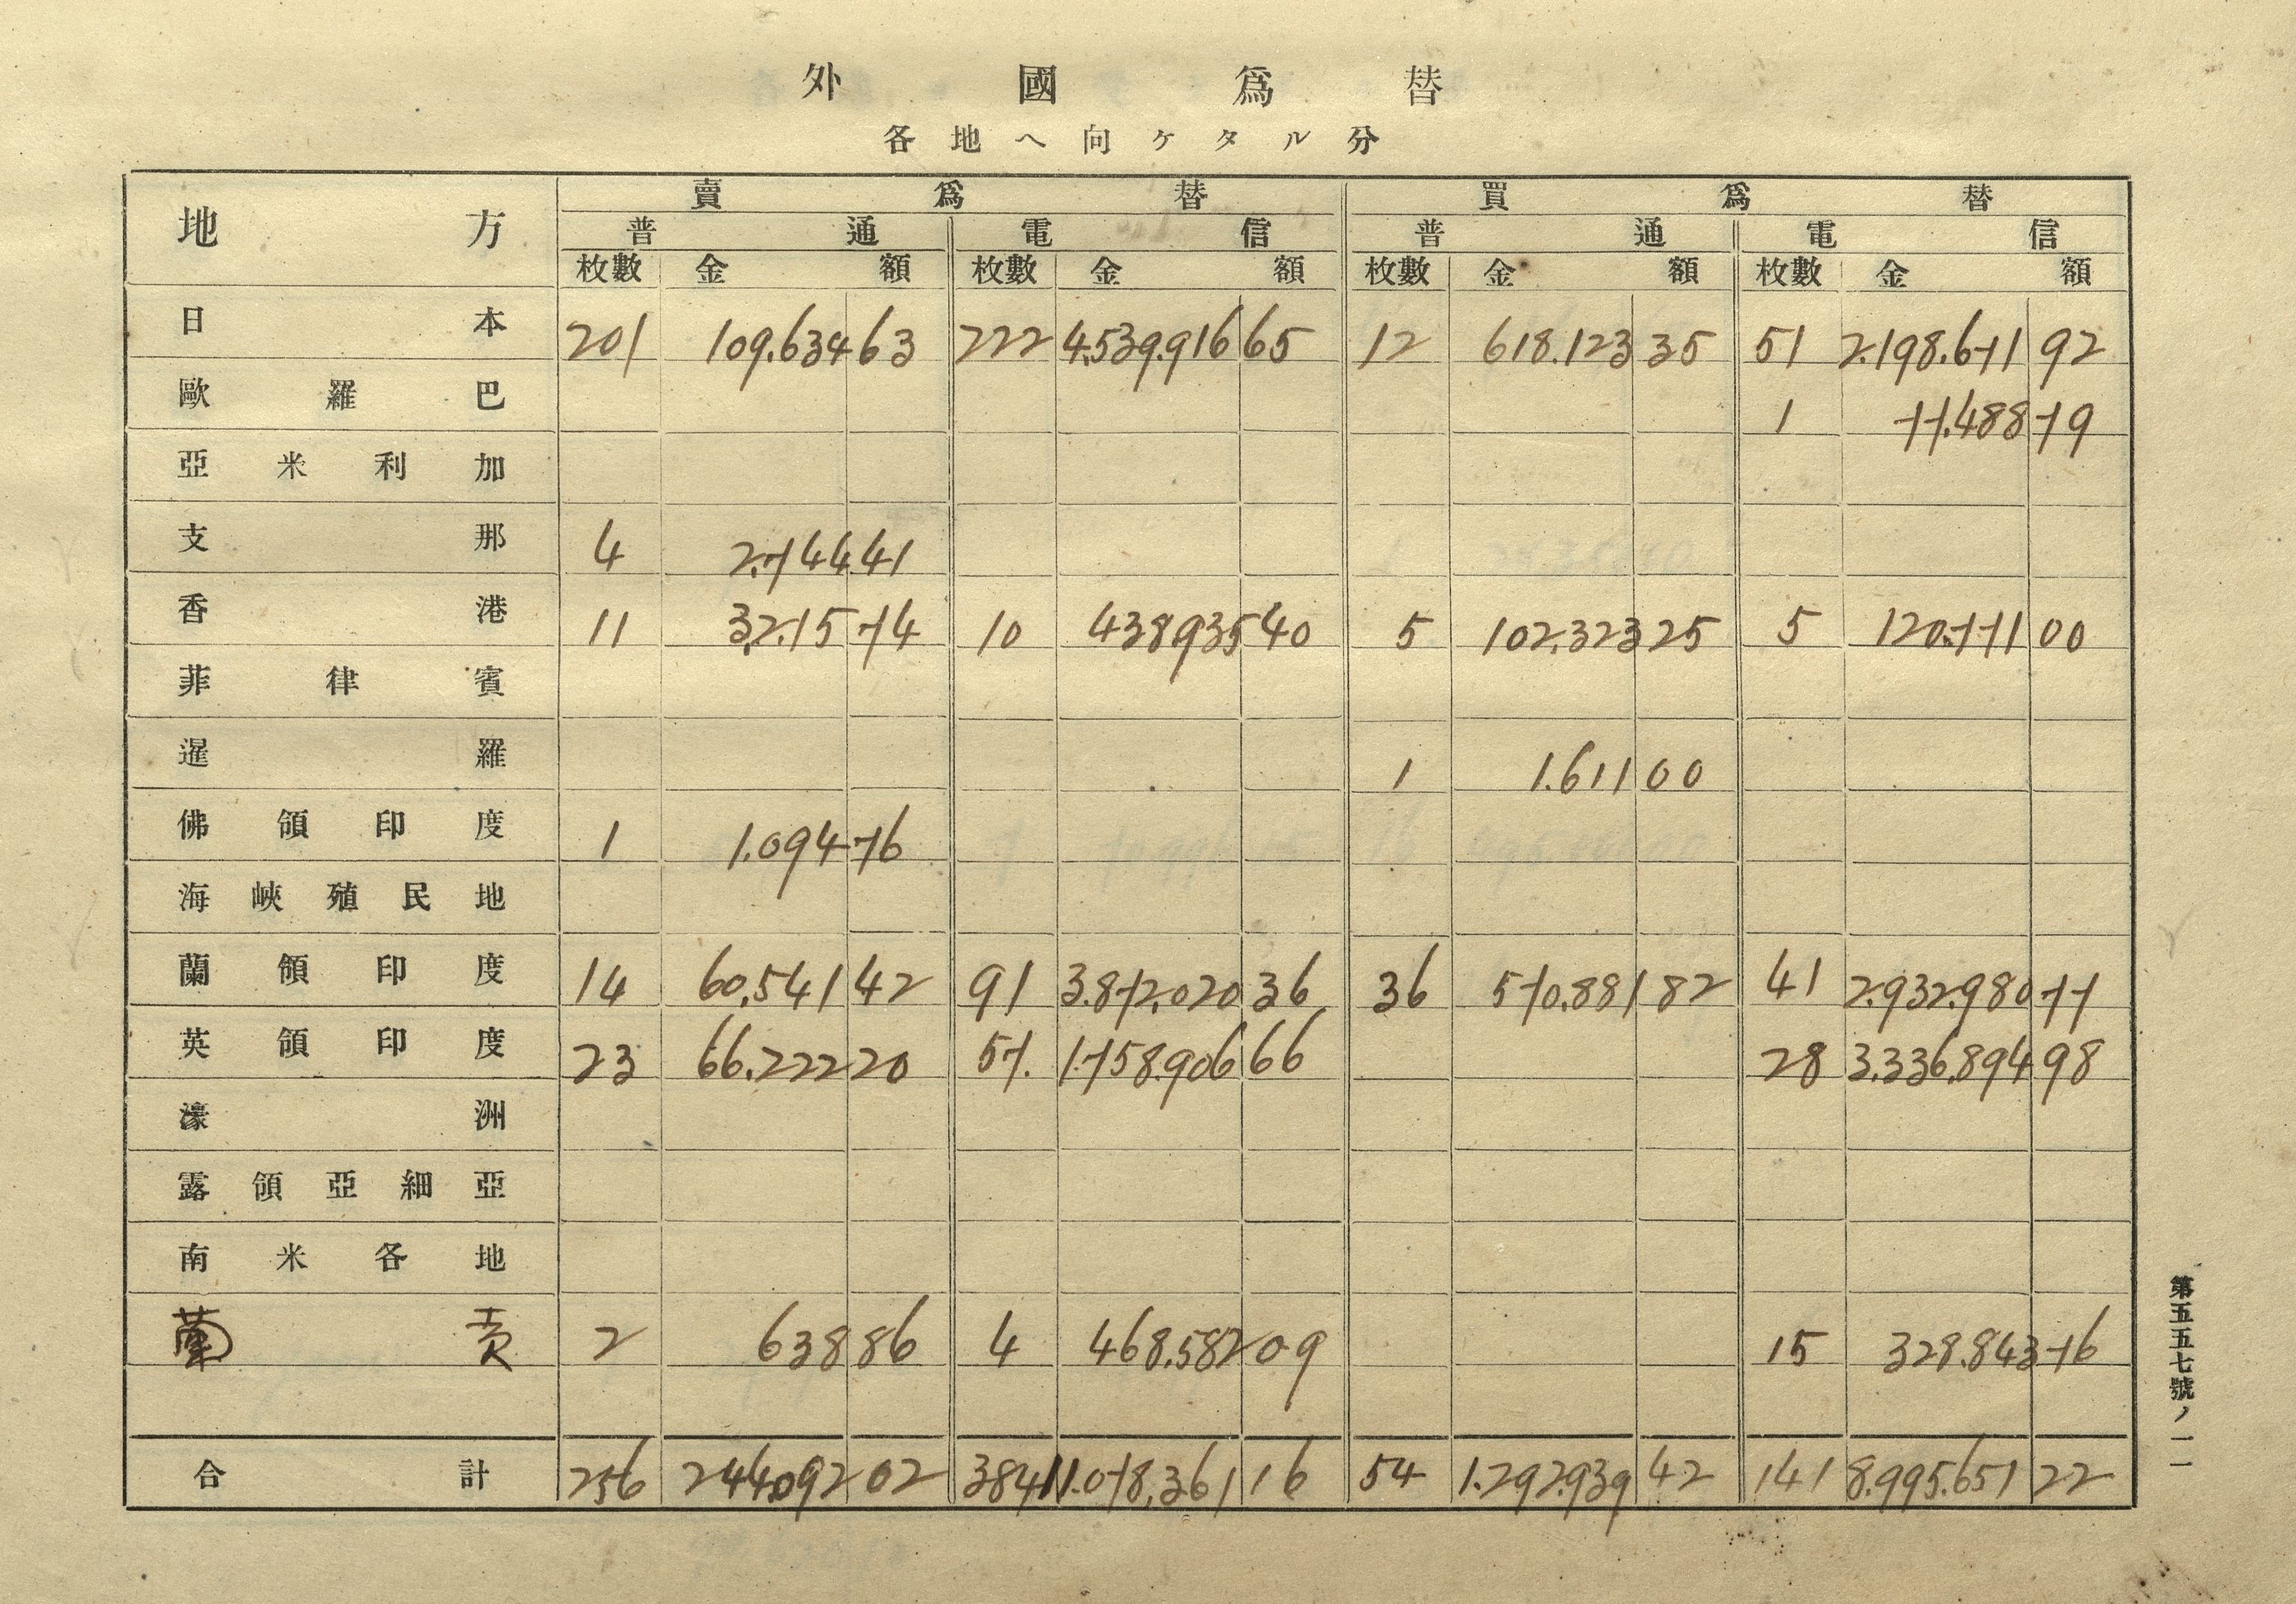 外國爲替
各地ヘ向ケタル分
地方 賣爲替 買爲替
普通 電信 普通 電信
枚數 金額 枚數 金額 枚數 金額 枚數 金額
日本 201 109.634 63 222 4.539.916 65 12 618.123 35 51 2.198.671 92
歐羅巴 1 77.488 79
亞米利加
支那 4 2.744 41
香港 11 3.215 74 10 438935 40 5 102.323 25 5 120.771 00
菲律賓
暹羅 1 1.611 00
佛領印度 1 1.094 76
海峽殖民地
蘭領印度 14 60.541 42 91 3.872.020 36 36 570.881 82 41 2.932.980 77
英領印度 23 66.222 20 57. 1.758.906 66 28 3.336.894 98
濠洲
露領亞細亞
南米各地
蘭貢 2 638 86 4 468.582 09 15 328.843 76
合計 256 244.092 02 384 11.078.361 16 54 1.292.939 42 141 8.995.651 22
第五五七號ノ一一